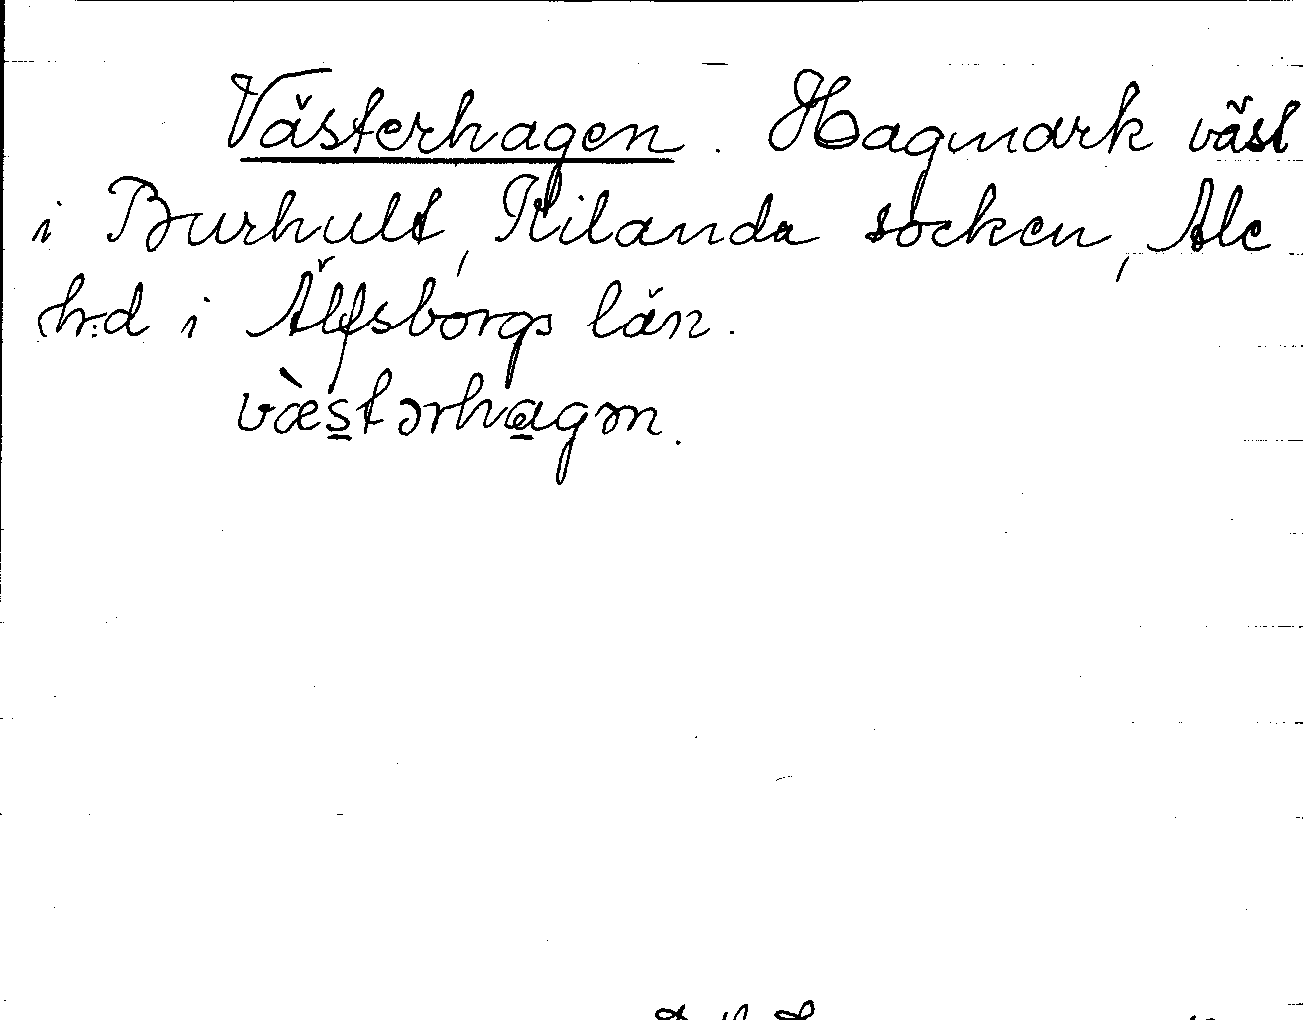 Västerhagen. Hagmark väst
i Burhult, Kilanda socken, Ale
h:d i Älfsborgs län.
væ̀s̲tərha̲gən.